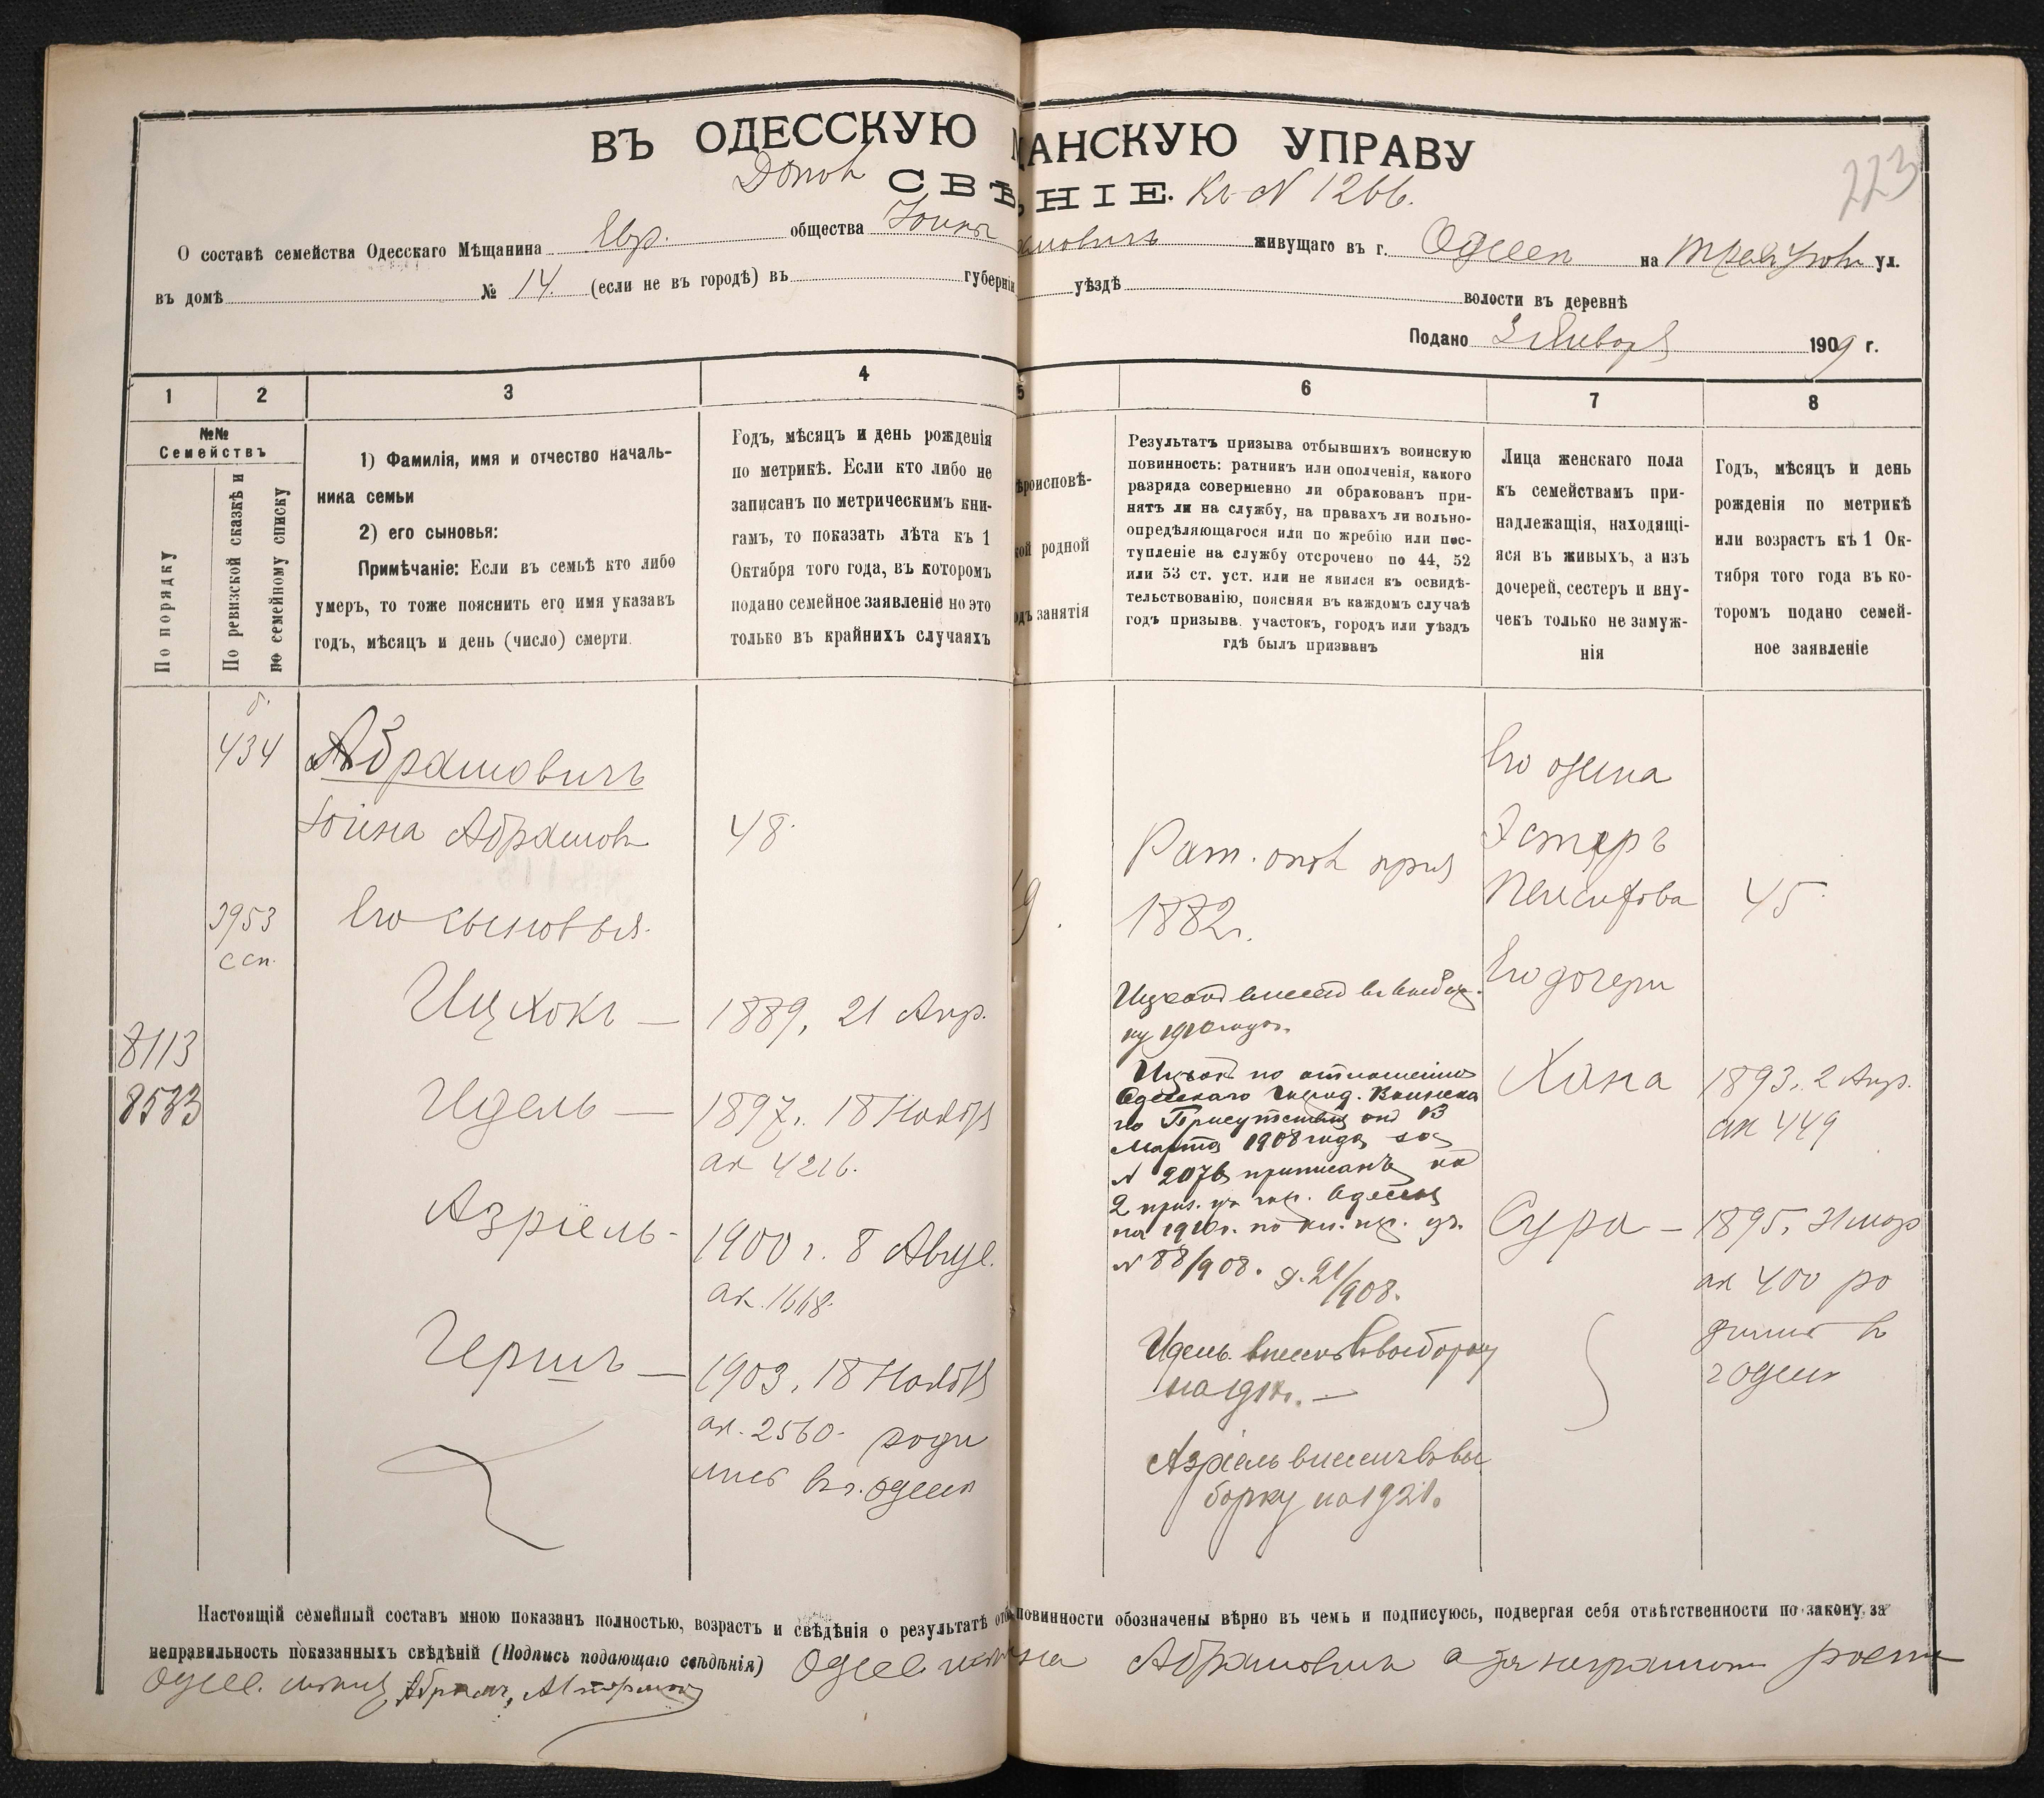 ВЪ ОДЕССКУЮ АНСКУЮ УПРАВУ
223
СВѢ НІЕ. N 1266.
О составѣ семейства Одесскаго Мѣщанина Евр. общества живущаго въ г. Одесѣ на ул.
въ домѣ № 14. (если не въ городѣ) въ губерніи уѣздѣ волости въ деревнѣ
Подано 3 Января 1909 г.
1 2 3 4 5 6 7 8
№№
Семействъ
По порядку
По ревизской сказкѣ и
по семейному списку
1) Фамилія, имя и отчество началь-
ника семьи
2) его сыновья:
Примѣчаніе: Если въ семьѣ кто либо
умеръ, то тоже пояснить его имя указавъ
годъ, мѣсяцъ и день (число) смерти.
Годъ, мѣсяцъ и день рожденія
по метрикѣ. Если кто либо не
записанъ по метрическимъ кни-
гамъ, то показать лѣта къ 1
Октября того года, въ которомъ
подано семейное заявленіе но это
только въ крайнихъ случаяхъ
ѣроисповѣ-
кой родной
одъ занятія
Результатъ призыва отбывшихъ воинскую
повинность: ратникъ или ополченія, какого
разряда совершенно ли обракованъ при-
нятъ ли на службу, на правахъ ли вольно-
опредѣляющагося или по жребію или пос-
тупленіе на службу отсрочено по 44, 52
или 53 ст. уст. или не явился къ освидѣ-
тельствованію, поясняя въ каждомъ случаѣ
годъ призыва. участокъ, городъ или уѣздъ
гдѣ былъ призванъ
Лица женскаго пола
къ семействамъ при-
надлежащія, находящі-
яся въ живыхъ, а изъ
дочерей, сестеръ и вну-
чекъ только не замуж-
нія
Годъ, мѣсяцъ и день
рожденія по метрикѣ
или возрастъ къ 1 Ок-
тября того года въ ко-
торомъ подано семей-
ное заявленіе
434
3953
8113
8533
Абрамовичъ
Іойна Абрамов
Его сыновья.
Ицхокъ —
Идель —
Азріель -
Гершъ —
48
1889, 21 Апр.
1897. 18 Ноября
ак 4216.
1900 г. 8 Авгус.
ак. 1668.
1903, 18 Ноября
ак. 2560. роди
лись в г. Одессѣ
Рат. опол приз
1882 г.
Ицхокъ внесенъ въ выбор.
ку 1910 года.
Ицхокъ по отношенію
Одесскаго Город. Воинска
го Присутствія отъ 13
Марта 1908 года за
N 2076 приписанъ ко
2 приз. уч. гор. Одессы
на 1910 г. по
N 88/908. 21/908.
Идель внесенъ въ выборку
на
Азріель внесенъ въ вы
борку на 1921.
Его жена
Эстеръ
45
Его дочери
Хана
1893. 2 Апр.
ак 449
Сура —
1895. 31 мар
ак 400 ро
дились в
г Одесѣ
Настоящій семейный составъ мною показанъ полностью, возрастъ и свѣдѣнія о результатѣ повинности обозначены вѣрно въ чемъ и подписуюсь, подвергая себя отвѣтственности по закону за
неправильность показанныхъ свѣдѣній (Подпись подающаго свѣдѣнія) Одес. Абрамовичъ а за неграмотн